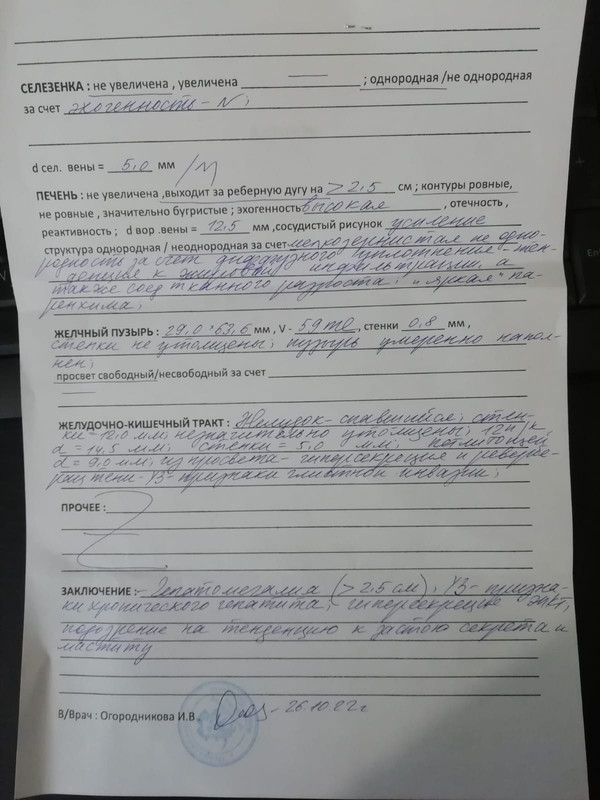 СЕЛЕЗЕНКА : не увеличена , увеличена ; однородная /не однородная
за счет эхогенность - N ;
d сел. вены = 5,0 мм
ПЕЧЕНЬ : не увеличена ,выходит за реберную дугу на > 2,5 см ; контуры ровные,
не ровные , значительно бугристые ; эхогенность высокая , отечность ,
реактивность ; d вор .вены = 12,5 мм ,сосудистый рисунок усиление
структура однородная / неоднородная за счет мелкозернистая не одно-
родность за счет диффузного уплотнения - тен-
денция к жировой инфильтрации, а
также соед тканного разроста ; "яркая" па-
ренхима ;
ЖЕЛЧНЫЙ ПУЗЫРЬ : 29,0 * 63,6 мм , V - 59 ml , стенки 0,8 мм ,
стенки не утолщены ; пузырь умеренно напол-
нен ;
просвет свободный/несвободный за счет
ЖЕЛУДОЧНО-КИШЕЧНЫЙ ТРАКТ : Желудок - спавшийся ; стен-
ки = 12,0 мм ; незначительно утолщены ; 12 п/к
d = 14,5 мм ; стенки = 5,0 мм ;
d = 9,0 мм ; из просвета - гиперсекреция и ревербе-
рац тени - УЗ - признаки глистной инвазии ;
ПРОЧЕЕ :
ЗАКЛЮЧЕНИЕ : - Гепатомегалия ( > 2,5 см) ; УЗ - призна-
ки хронического гепатита ; гиперсекреция ЖКТ ;
подозрение на тенденцию к застою секрета и
маститу
В/Врач : Огородникова И.В. - 26.10.22 г